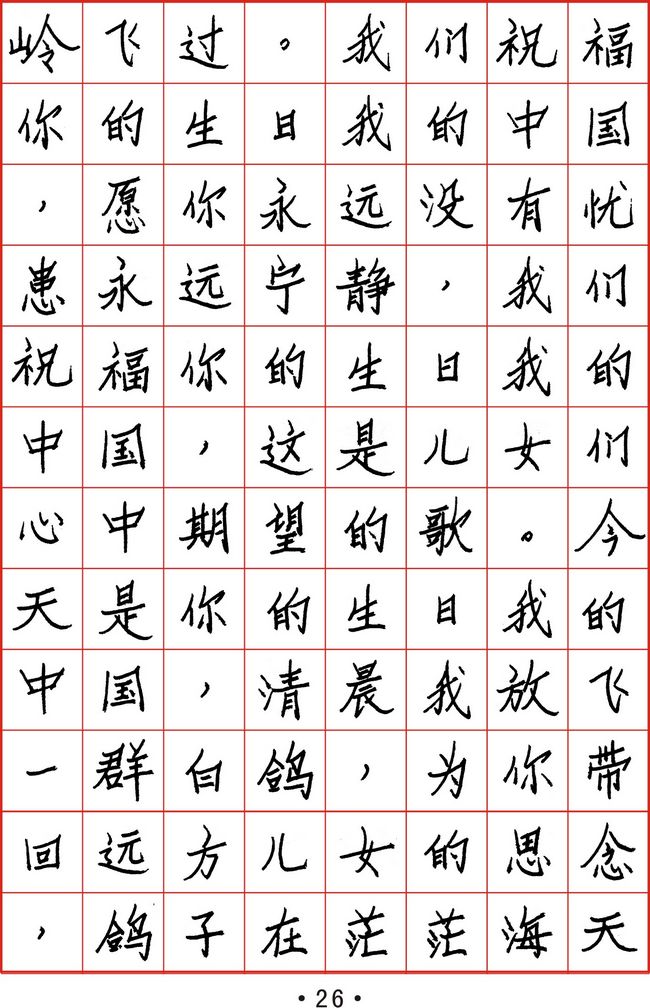 岭飞过。我们祝福
你的生日我的中国
，愿你永远没有忧
患永远宁静，我们
祝福你的生日我的
中国，这是儿女们
心中期望的歌。今
天是你的生日我的
中国，清晨我放飞
一群白鸽，为你带
回远方儿女的思念
，鸽子在茫茫海天
·26·